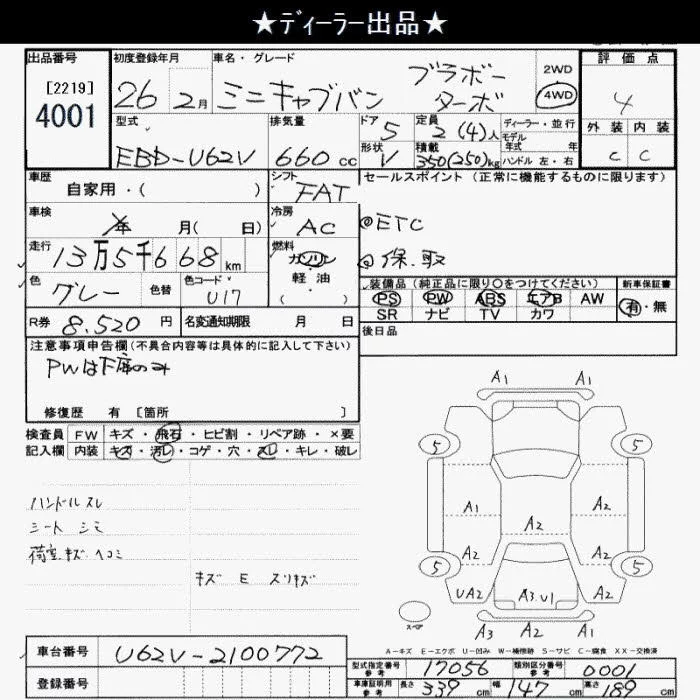 ★ディーラー出品★
出品番号 初度登録年月 車名・グレード 評価点
[2219]
4001
26年 2月 ミニキャブバン ブラボー ターボ 2WD 4WD 4
型式 排気量 ドア 定員 ディーラー・並行 外装 内装
EBD-U62V 660cc 5 2(4)人 モデル年式 年
形状 積載 ハンドル 左・右
V 350(250)kg C C
車歴 シフト セールスポイント(正常に機能するものに限ります)
自家用・( ) FAT
車検 冷房
年 月( 日) AC ◎ETC
走行 燃料
13万5千668km ガソリン ◎保.取
軽油
色 色替 色コード ( )
グレー U17
装備品(純正品に限り〇をつけてください) 新車保証書
PS PW ABS エアB AW 有・無
SR ナビ TV カワ
R券 8,520円 名変通知期限 月 日 後日品
注意事項申告欄(不具合内容等は具体的に記入して下さい)
PWは下席のみ
修復歴 有 [箇所 ]
検査員 FW キズ・飛石・ヒビ割・リペア跡・×要
記入欄 内装 キズ・汚レ・コゲ・穴・スレ・キレ・破レ
ハンドルスレ
シート シミ
荷室キズ ヘコミ
キズ E スリキズ
A1 A1
5 5
A1 A2 A2
A2 A2
5 5
UA2 A3.U1 A2
スペア A3 A2 A1
A-キズ E-エクボ U-凹み W-補修跡 S-サビ C-腐食 XX-交換済
車台番号 U62V-2100772
型式指定番号 参考 17056 類別区分番号 参考 0001
登録番号
車庫証明用 参考 長さ 339cm 幅 147cm 高さ 189cm